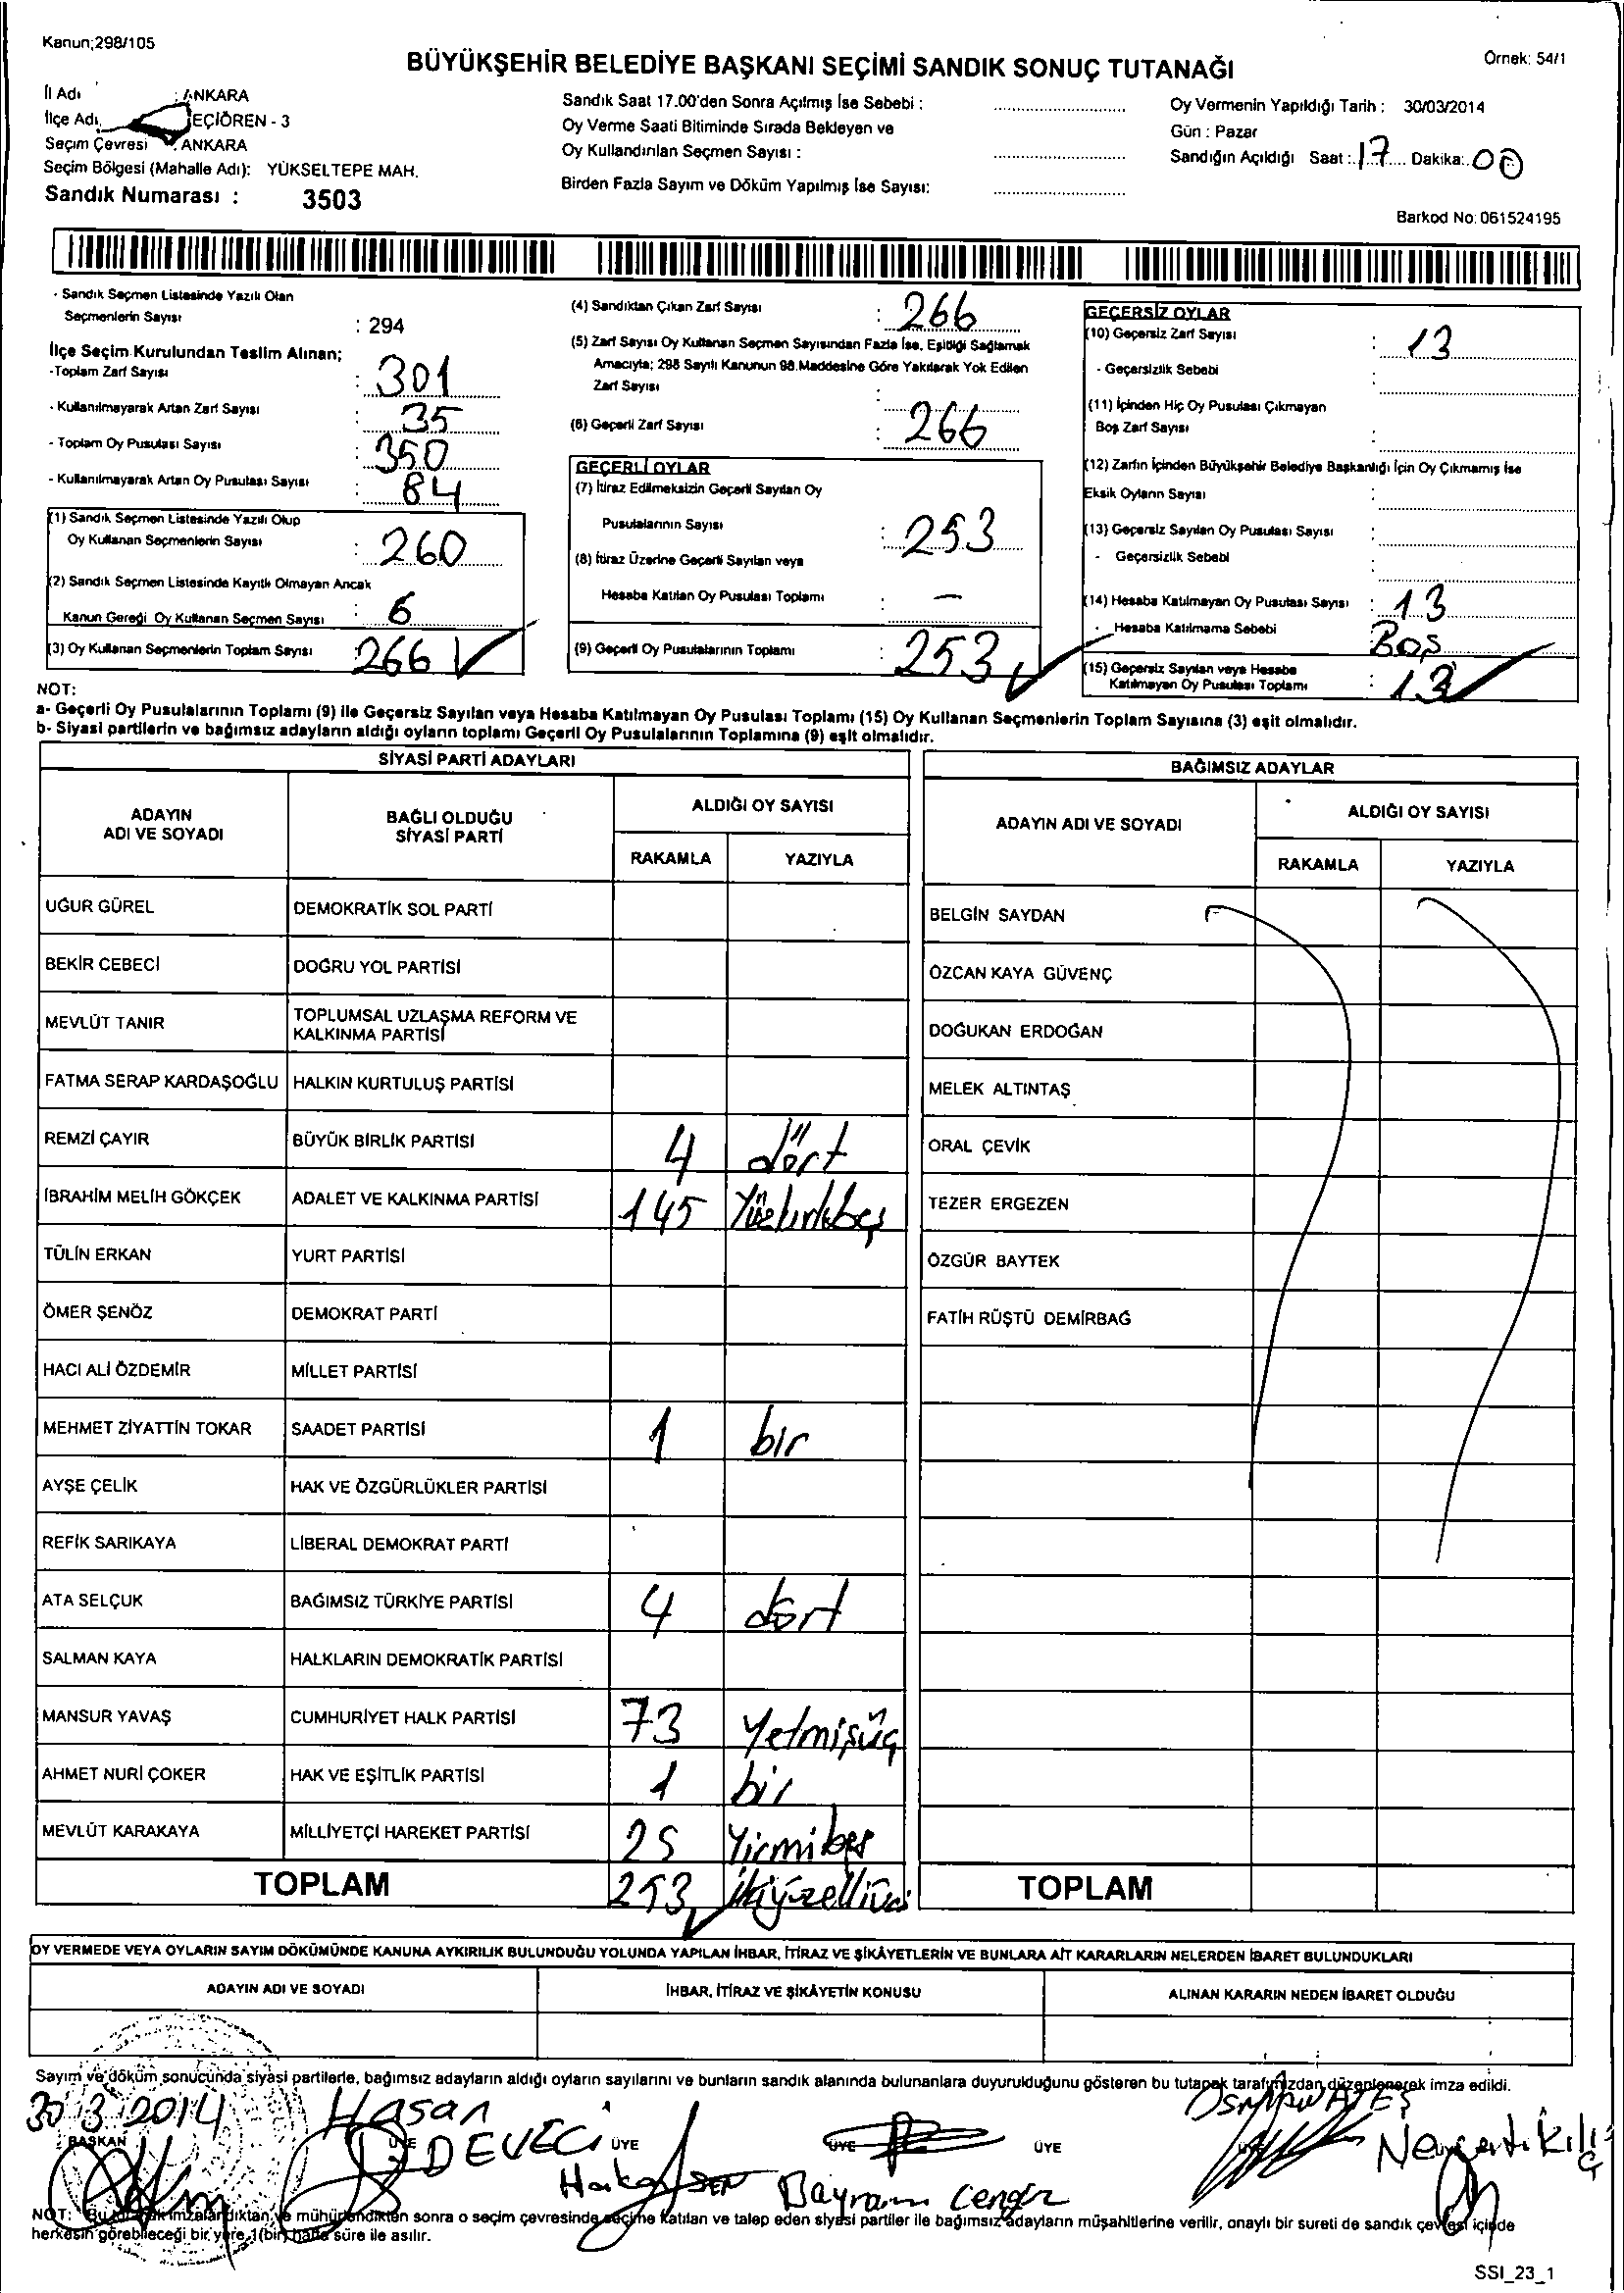 Kanun;298/105
BÜYÜKŞEHİR BELEDİYE BAŞKANI SEÇİMİ SANDIK SONUÇ TUTANAĞI
Örnek: 54/1
İl Adı : ANKARA
İlçe Adı EÇİÖREN - 3
Seçim Çevresi : ANKARA
Seçim Bölgesi (Mahalle Adı): YÜKSELTEPE MAH.
Sandık Numarası : 3503
Sandık Saat 17.00'den Sonra Açılmış İse Sebebi :
Oy Verme Saati Bitiminde Sırada Bekleyen ve
Oy Kullandırılan Seçmen Sayısı :
Birden Fazla Sayım ve Döküm Yapılmış İse Sayısı:
Oy Vermenin Yapıldığı Tarih : 30/03/2014
Gün : Pazar
Sandığın Açıldığı Saat : 17 Dakika: 00
Barkod No: 061524195
- Sandık Seçmen Listesinde Yazılı Olan
Seçmenlerin Sayısı : 294
İlçe Seçim Kurulundan Teslim Alınan;
-Toplam Zarf Sayısı : 301
- Kullanılmayarak Artan Zarf Sayısı : 35
- Toplam Oy Pusulası Sayısı : 350
- Kullanılmayarak Artan Oy Pusulası Sayısı : 84
(1) Sandık Seçmen Listesinde Yazılı Olup
Oy Kullanan Seçmenlerin Sayısı : 260
(2) Sandık Seçmen Listesinde Kayıtlı Olmayan Ancak
Kanun Gereği Oy Kullanan Seçmen Sayısı : 6
(3) Oy Kullanan Seçmenlerin Toplam Sayısı 266
(4) Sandıktan Çıkan Zarf Sayısı : 266
(5) Zarf Sayısı Oy Kullanan Seçmen Sayısından Fazla İse, Eşitliği Sağlamak
Amacıyla; 298 Sayılı Kanunun 98.Maddesine Göre Yakılarak Yok Edilen
Zarf Sayısı :
(6) Geçerli Zarf Sayısı : 266
GEÇERLİ OYLAR
(7) İtiraz Edilmeksizin Geçerli Sayılan Oy
Pusulalarının Sayısı : 253
(8) İtiraz Üzerine Geçerli Sayılan veya
Hesaba Katılan Oy Pusulası Toplamı : —
(9) Geçerli Oy Pusulalarının Toplamı : 253
GEÇERSİZ OYLAR
(10) Geçersiz Zarf Sayısı : 13
- Geçersizlik Sebebi :
(11) İçinden Hiç Oy Pusulası Çıkmayan
Boş Zarf Sayısı :
(12) Zarfın İçinden Büyükşehir Belediye Başkanlığı İçin Oy Çıkmamış İse
Eksik Oyların Sayısı :
(13) Geçersiz Sayılan Oy Pusulası Sayısı :
- Geçersizlik Sebebi
(14) Hesaba Katılmayan Oy Pusulası Sayısı : 13
- Hesaba Katılmama Sebebi : Boş
(15) Geçersiz Sayılan veya Hesaba
Katılmayan Oy Pusulası Toplamı : 13
NOT:
a- Geçerli Oy Pusulalarının Toplamı (9) ile Geçersiz Sayılan veya Hesaba Katılmayan Oy Pusulası Toplamı (15) Oy Kullanan Seçmenlerin Toplam Sayısına (3) eşit olmalıdır.
b- Siyasi partilerin ve bağımsız adayların aldığı oyların toplamı Geçerli Oy Pusulalarının Toplamına (9) eşit olmalıdır.
SİYASİ PARTİ ADAYLARI
ADAYIN ADI VE SOYADI BAĞLI OLDUĞU SİYASİ PARTİ ALDIĞI OY SAYISI
RAKAMLA YAZIYLA
UĞUR GÜREL DEMOKRATİK SOL PARTİ
BEKİR CEBECİ DOĞRU YOL PARTİSİ
MEVLÜT TANIR TOPLUMSAL UZLAŞMA REFORM VE KALKINMA PARTİSİ
FATMA SERAP KARDAŞOĞLU HALKIN KURTULUŞ PARTİSİ
REMZİ ÇAYIR BÜYÜK BİRLİK PARTİSİ 4 dört
İBRAHİM MELİH GÖKÇEK ADALET VE KALKINMA PARTİSİ 145 Yüzkırkbeş
TÜLİN ERKAN YURT PARTİSİ
ÖMER ŞENÖZ DEMOKRAT PARTİ
HACI ALİ ÖZDEMİR MİLLET PARTİSİ
MEHMET ZİYATTİN TOKAR SAADET PARTİSİ 1 bir
AYŞE ÇELİK HAK VE ÖZGÜRLÜKLER PARTİSİ
REFİK SARIKAYA LİBERAL DEMOKRAT PARTİ
ATA SELÇUK BAĞIMSIZ TÜRKİYE PARTİSİ 4 dört
SALMAN KAYA HALKLARIN DEMOKRATİK PARTİSİ
MANSUR YAVAŞ CUMHURİYET HALK PARTİSİ 73 Yetmişüç
AHMET NURİ ÇOKER HAK VE EŞİTLİK PARTİSİ 1 bir
MEVLÜT KARAKAYA MİLLİYETÇİ HAREKET PARTİSİ 25 Yirmibeş
TOPLAM 253 İkiyüzelliüç
BAĞIMSIZ ADAYLAR
ADAYIN ADI VE SOYADI ALDIĞI OY SAYISI
RAKAMLA YAZIYLA
BELGİN SAYDAN
ÖZCAN KAYA GÜVENÇ
DOĞUKAN ERDOĞAN
MELEK ALTINTAŞ
ORAL ÇEVİK
TEZER ERGEZEN
ÖZGÜR BAYTEK
FATİH RÜŞTÜ DEMİRBAĞ
TOPLAM
OY VERMEDE VEYA OYLARIN SAYIM DÖKÜMÜNDE KANUNA AYKIRILIK BULUNDUĞU YOLUNDA YAPILAN İHBAR, İTİRAZ VE ŞİKÂYETLERİN VE BUNLARA AİT KARARLARIN NELERDEN İBARET BULUNDUKLARI
ADAYIN ADI VE SOYADI İHBAR, İTİRAZ VE ŞİKÂYETİN KONUSU ALINAN KARARIN NEDEN İBARET OLDUĞU
Sayım ve döküm sonucunda siyasi partilerle, bağımsız adayların aldığı oyların sayılarını ve bunların sandık alanında bulunanlara duyurulduğunu gösteren bu tutanak tarafımızdan düzenlenerek imza edildi.
30 3 2014 Hasan DEVECİ OSMAN ATEŞ
BAŞKAN ÜYE ÜYE ÜYE ÜYE ÜYE
Hakan ŞEN Bayram Cengiz Kılıç
NOT: Bu tutanak imzalandıktan ve mühürlendikten sonra o seçim çevresinde seçime katılan ve talep eden siyasi partiler ile bağımsız adayların müşahitlerine verilir, onaylı bir sureti de sandık çevresi içinde
herkesin görebileceği bir yere 1(bir) hafta süre ile asılır.
SSI_23_1